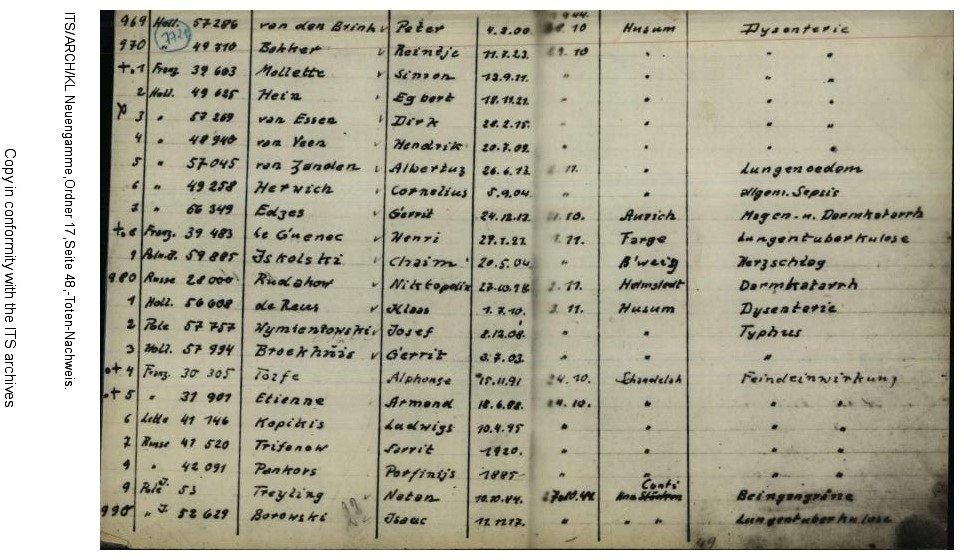 ITS/ARCH/KL Neuengamme,Ordner 17,Seite 48,-Toten-Nachweis.
Copy in conformity with the ITS archives
969 Holl. 57 286 van den Brink Peter 4.2.00 .10 Husum Dysenterie
7721
970 " 49 710 Bakker Reindje 11.7.23. 29.10 " " "
+.1 Franz. 39 603 Mollette Simon 12.9.11. " " " "
2 Holl. 49 625 Hein Egbert 18.11.21. " " " "
3 " 57 269 van Essen Dirk 20.2.15. " " " "
4 " 48 940 van Veen Hendrik 20.7.09. " " " "
5 " 57 045 van Zanden Albertus 26.6.13. 11. " Lungenoedem
6 " 49 258 Herwich Cornelius 5.9.04. " " allgem. Sepsis
7 " 56 349 Edzes Gerrit 24.12.12. 10. Aurich Magen-u. Darmkatarrh
+.8 Franz. 39 483 le Guenec Henri 27.1.21. 1.11. Farge Lungentuberkulose
9 Pole.J. 59 885 Iskolski Chaim 20.5.04. " B'weig Herzschlag
980 Russe 28 000 Rudakow Nikitopolix 27.10.98 2.11. Helmstedt Darmkatarrh
1 Holl. 56 608 de Reus Klaas 1.7.10. 2.11. Husum Dysenterie
2 Pole 57 757 Wymientowski Josef 8.12.08. " " Typhus
3 Holl. 57 994 Broekhuis Gerrit 3.7.03. " " "
+ 4 Franz. 30 305 Alphonse 15.11.91 24.10. Schandelah Feindeinwirkung
+ 5 " 31 901 Etienne Armand 18.6.98. 24.10. " " "
6 Lette 41 146 Kopikis Ludwigs 10.4.95 " " " "
7 Russe 41 520 Trifonow Sarrit 1920. " " " "
9 " 42 091 Pankors Porfinijs 1885 " " " "
9 Pole J. 53 Treyting Natan 10.10.44. 27.10.44 Conti Beingangräne
990 " J. 52 629 Borowski 22 Isaac 12.12.17. " " " Lungentuberkulose
49